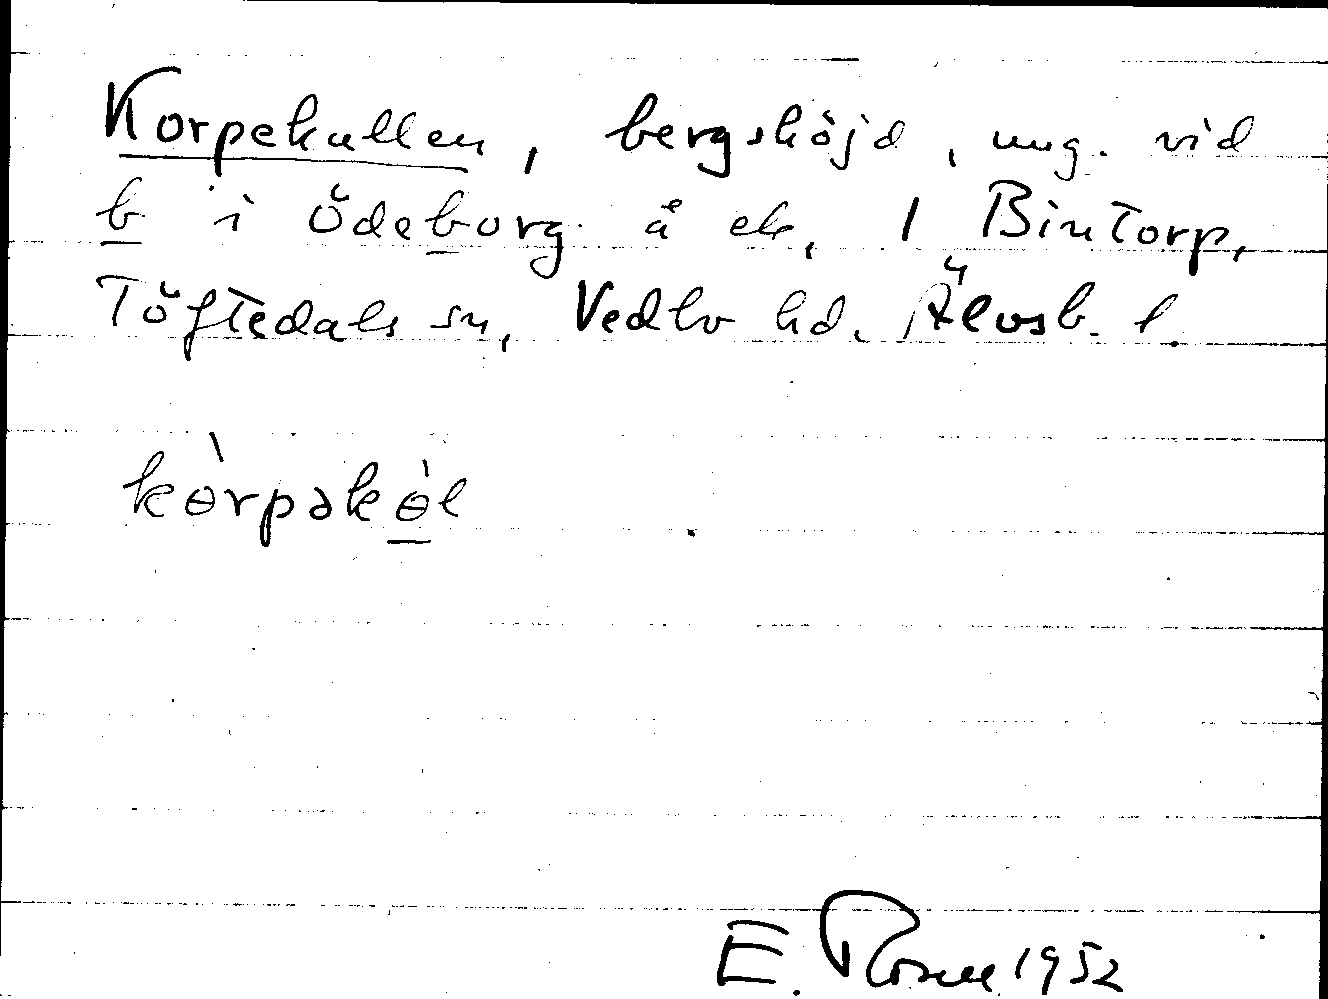 Korpekullen, bergshöjd, ung. vid
b i Ödeborg å ek, 1 Bintorp,
Töftedals sn, Vedbo hd. Älvsb. l.
kɵ̀rpəkɵ̀l
E. Rosell 1952